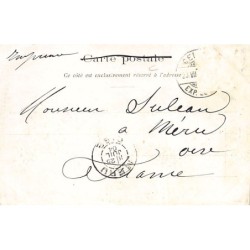 Imprimé
Carte postale
Ce côté est exclusivement réservé à l'adresse
Monsieur Suleau
à Méru
oise
France
MERU
EXP